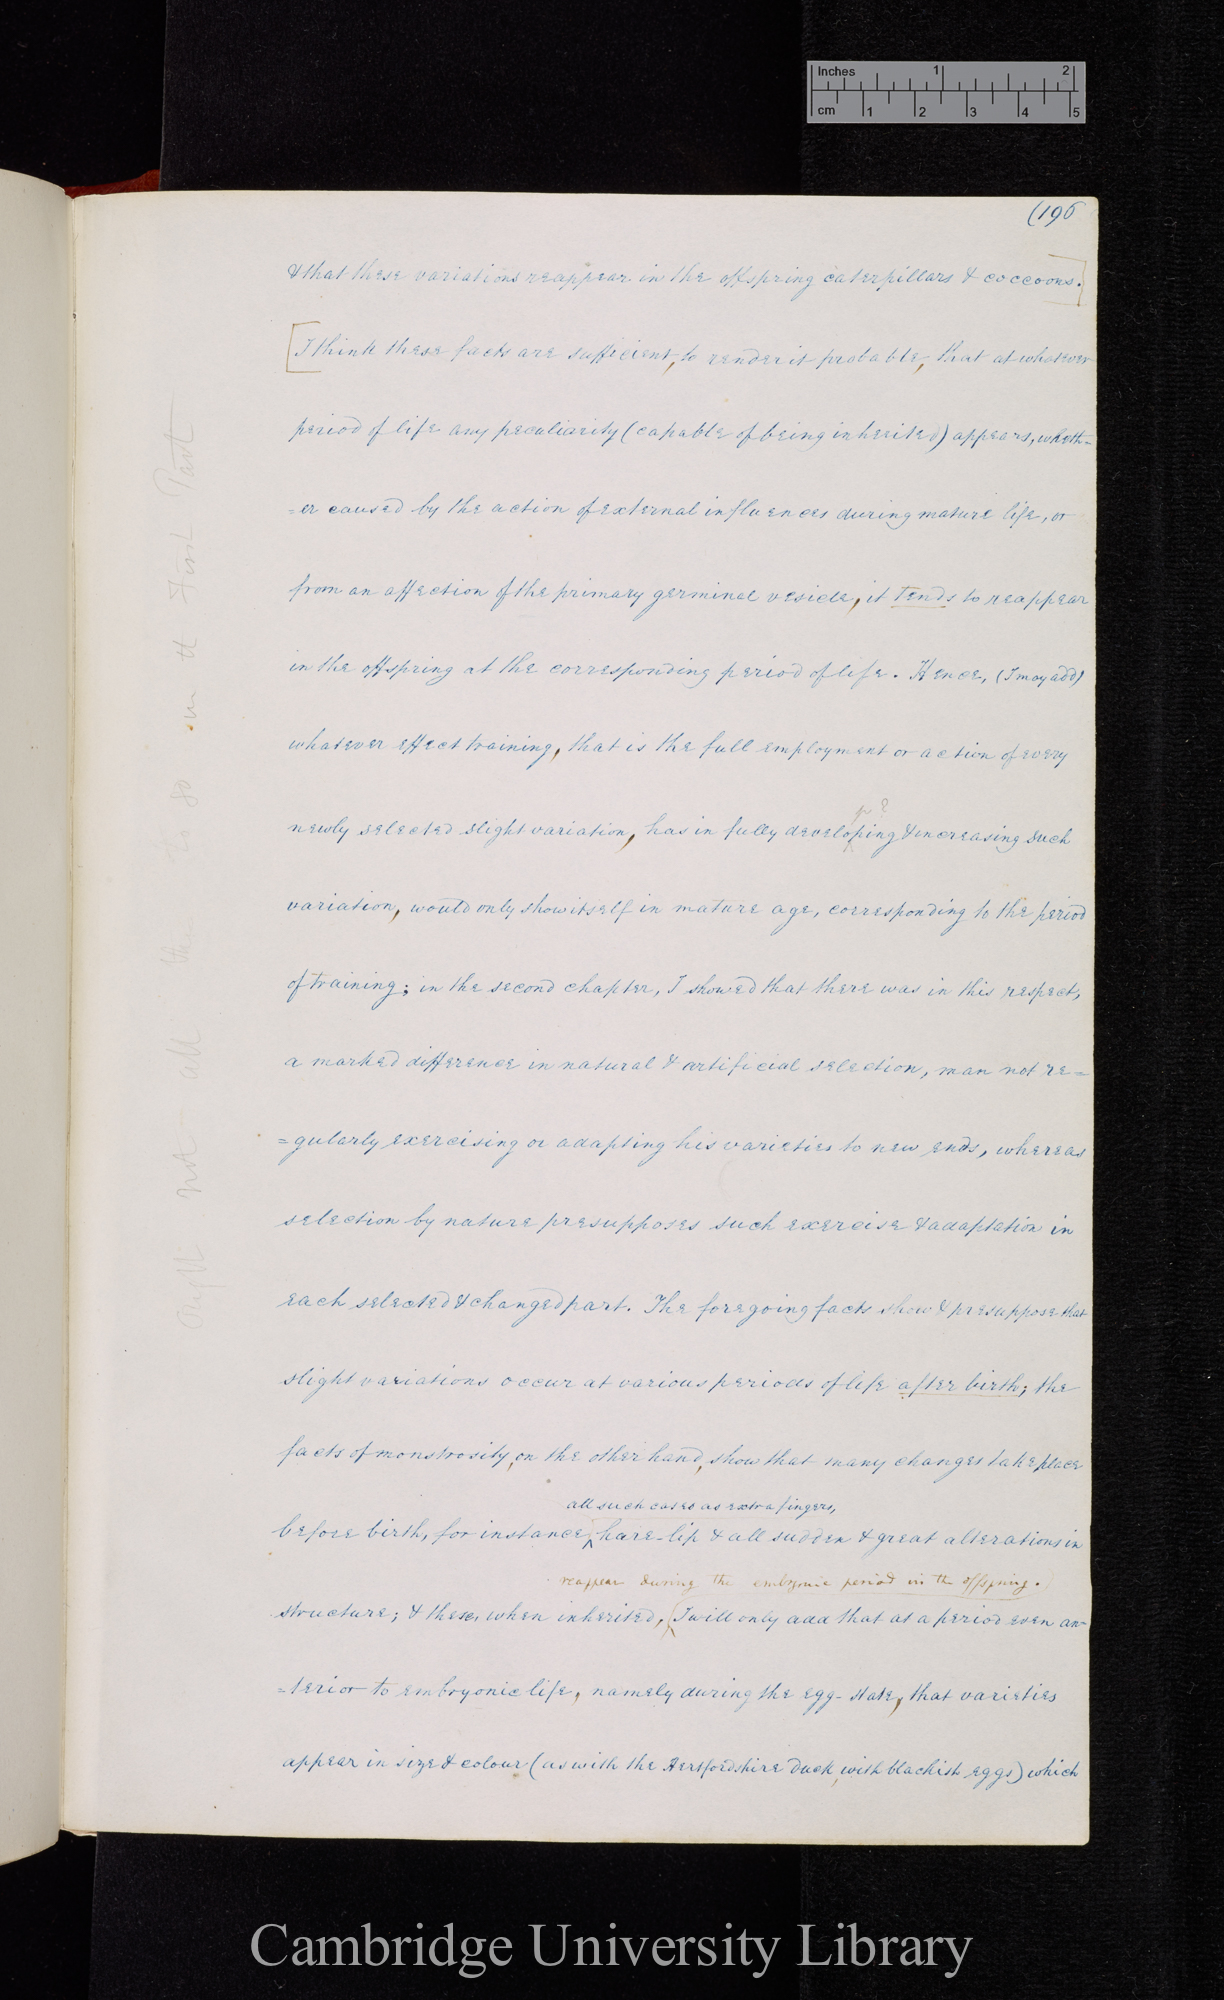 Inches 1 2
cm 1 2 3 4 5
(196
& that these variations reappear in the offspring caterpillars & coccoons.]
[I think these facts are sufficient, to render it probable, that at whatever
period of life any peculiarity (capable of being inherited) appears, wheth=
=er caused by the action of external influences during mature life, or
from an affection of the primary germinal vesicle, it tends to reappear
in the offspring at the corresponding period of life. Hence, (I may add)
whatever effect training, that is the full employment or action of every
p?
newly selected slight variation, has in fully developing & increasing such
variation, would only show itself in mature age, corresponding to the period
of training; in the second chapter, I showed that there was in this respect,
a marked difference in natural & artificial selection, man not re=
=gularly exercising or adapting his varieties to new ends, whereas
selection by nature presupposes such exercise & adaptation in
each selected & changed part. The foregoing facts show & presuppose that
slight variations occur at various periods of life after birth; the
facts of monstrosity, on the other hand, show that many changes take place
all such cases as extra fingers,
before birth, for instance, hare-lip & all sudden & great alterations in
reappear during the embryonic period in the offspring.
structure; & these, when inherited, (I will only add that at a period even an-
=terior to embryonic life, namely during the egg-state, that varieties
appear in size & colour (as with the Hertfordshire duck, with blackish eggs) which
ought not all this go in the First Part
Cambridge University Library